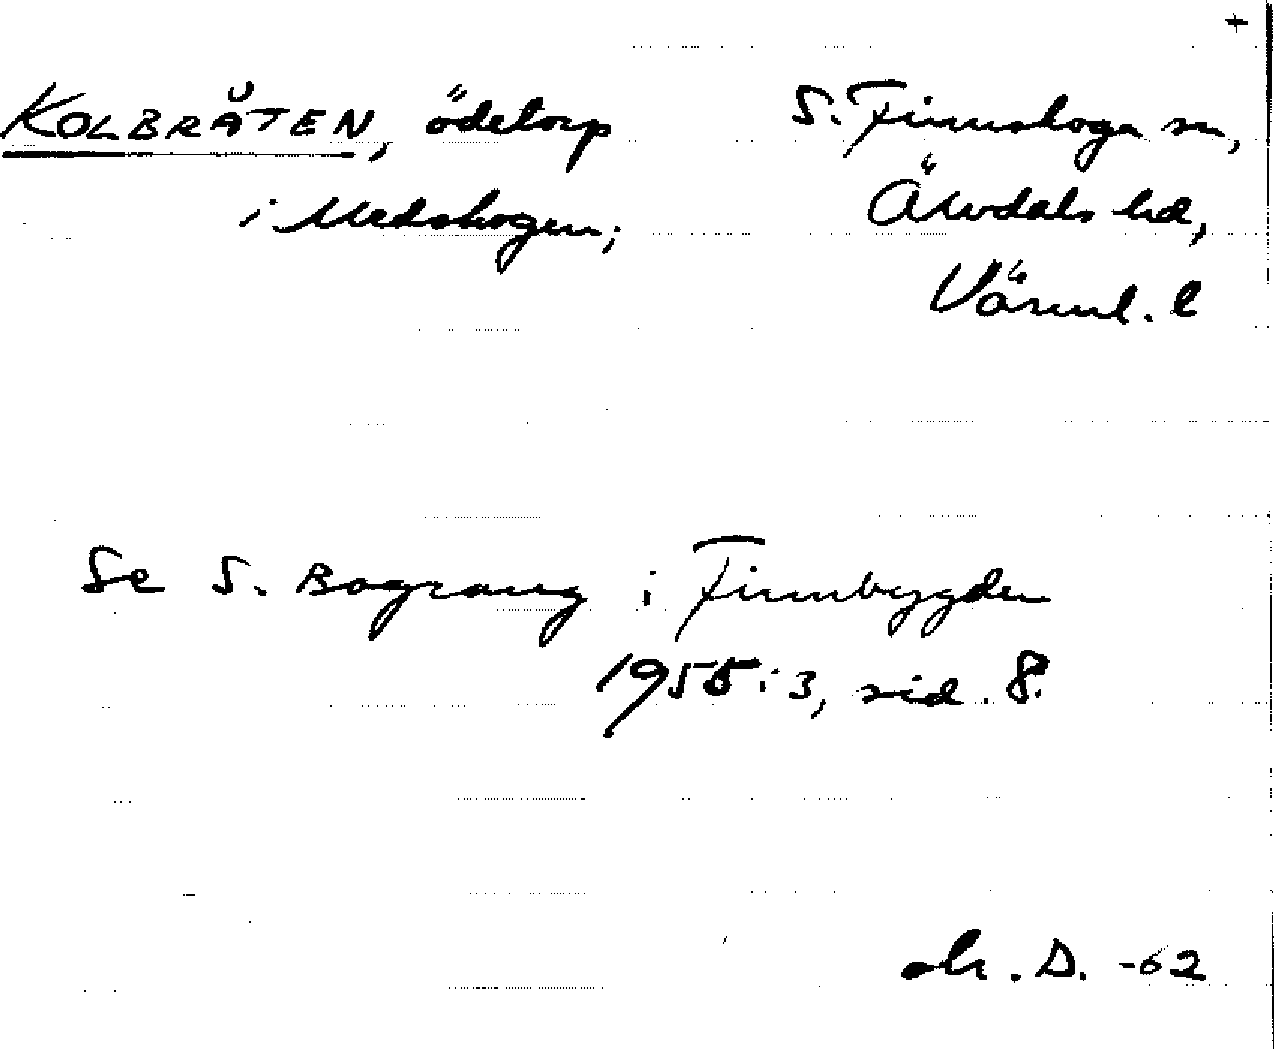 +
KOLBRÅTEN, ödetorp
i Medskogen;
S. Finnskoga sn,
Älvdals hd,
Värml. l
Se S. Bograng i Finnbygden
1955:3, sid. 8.
D. -62